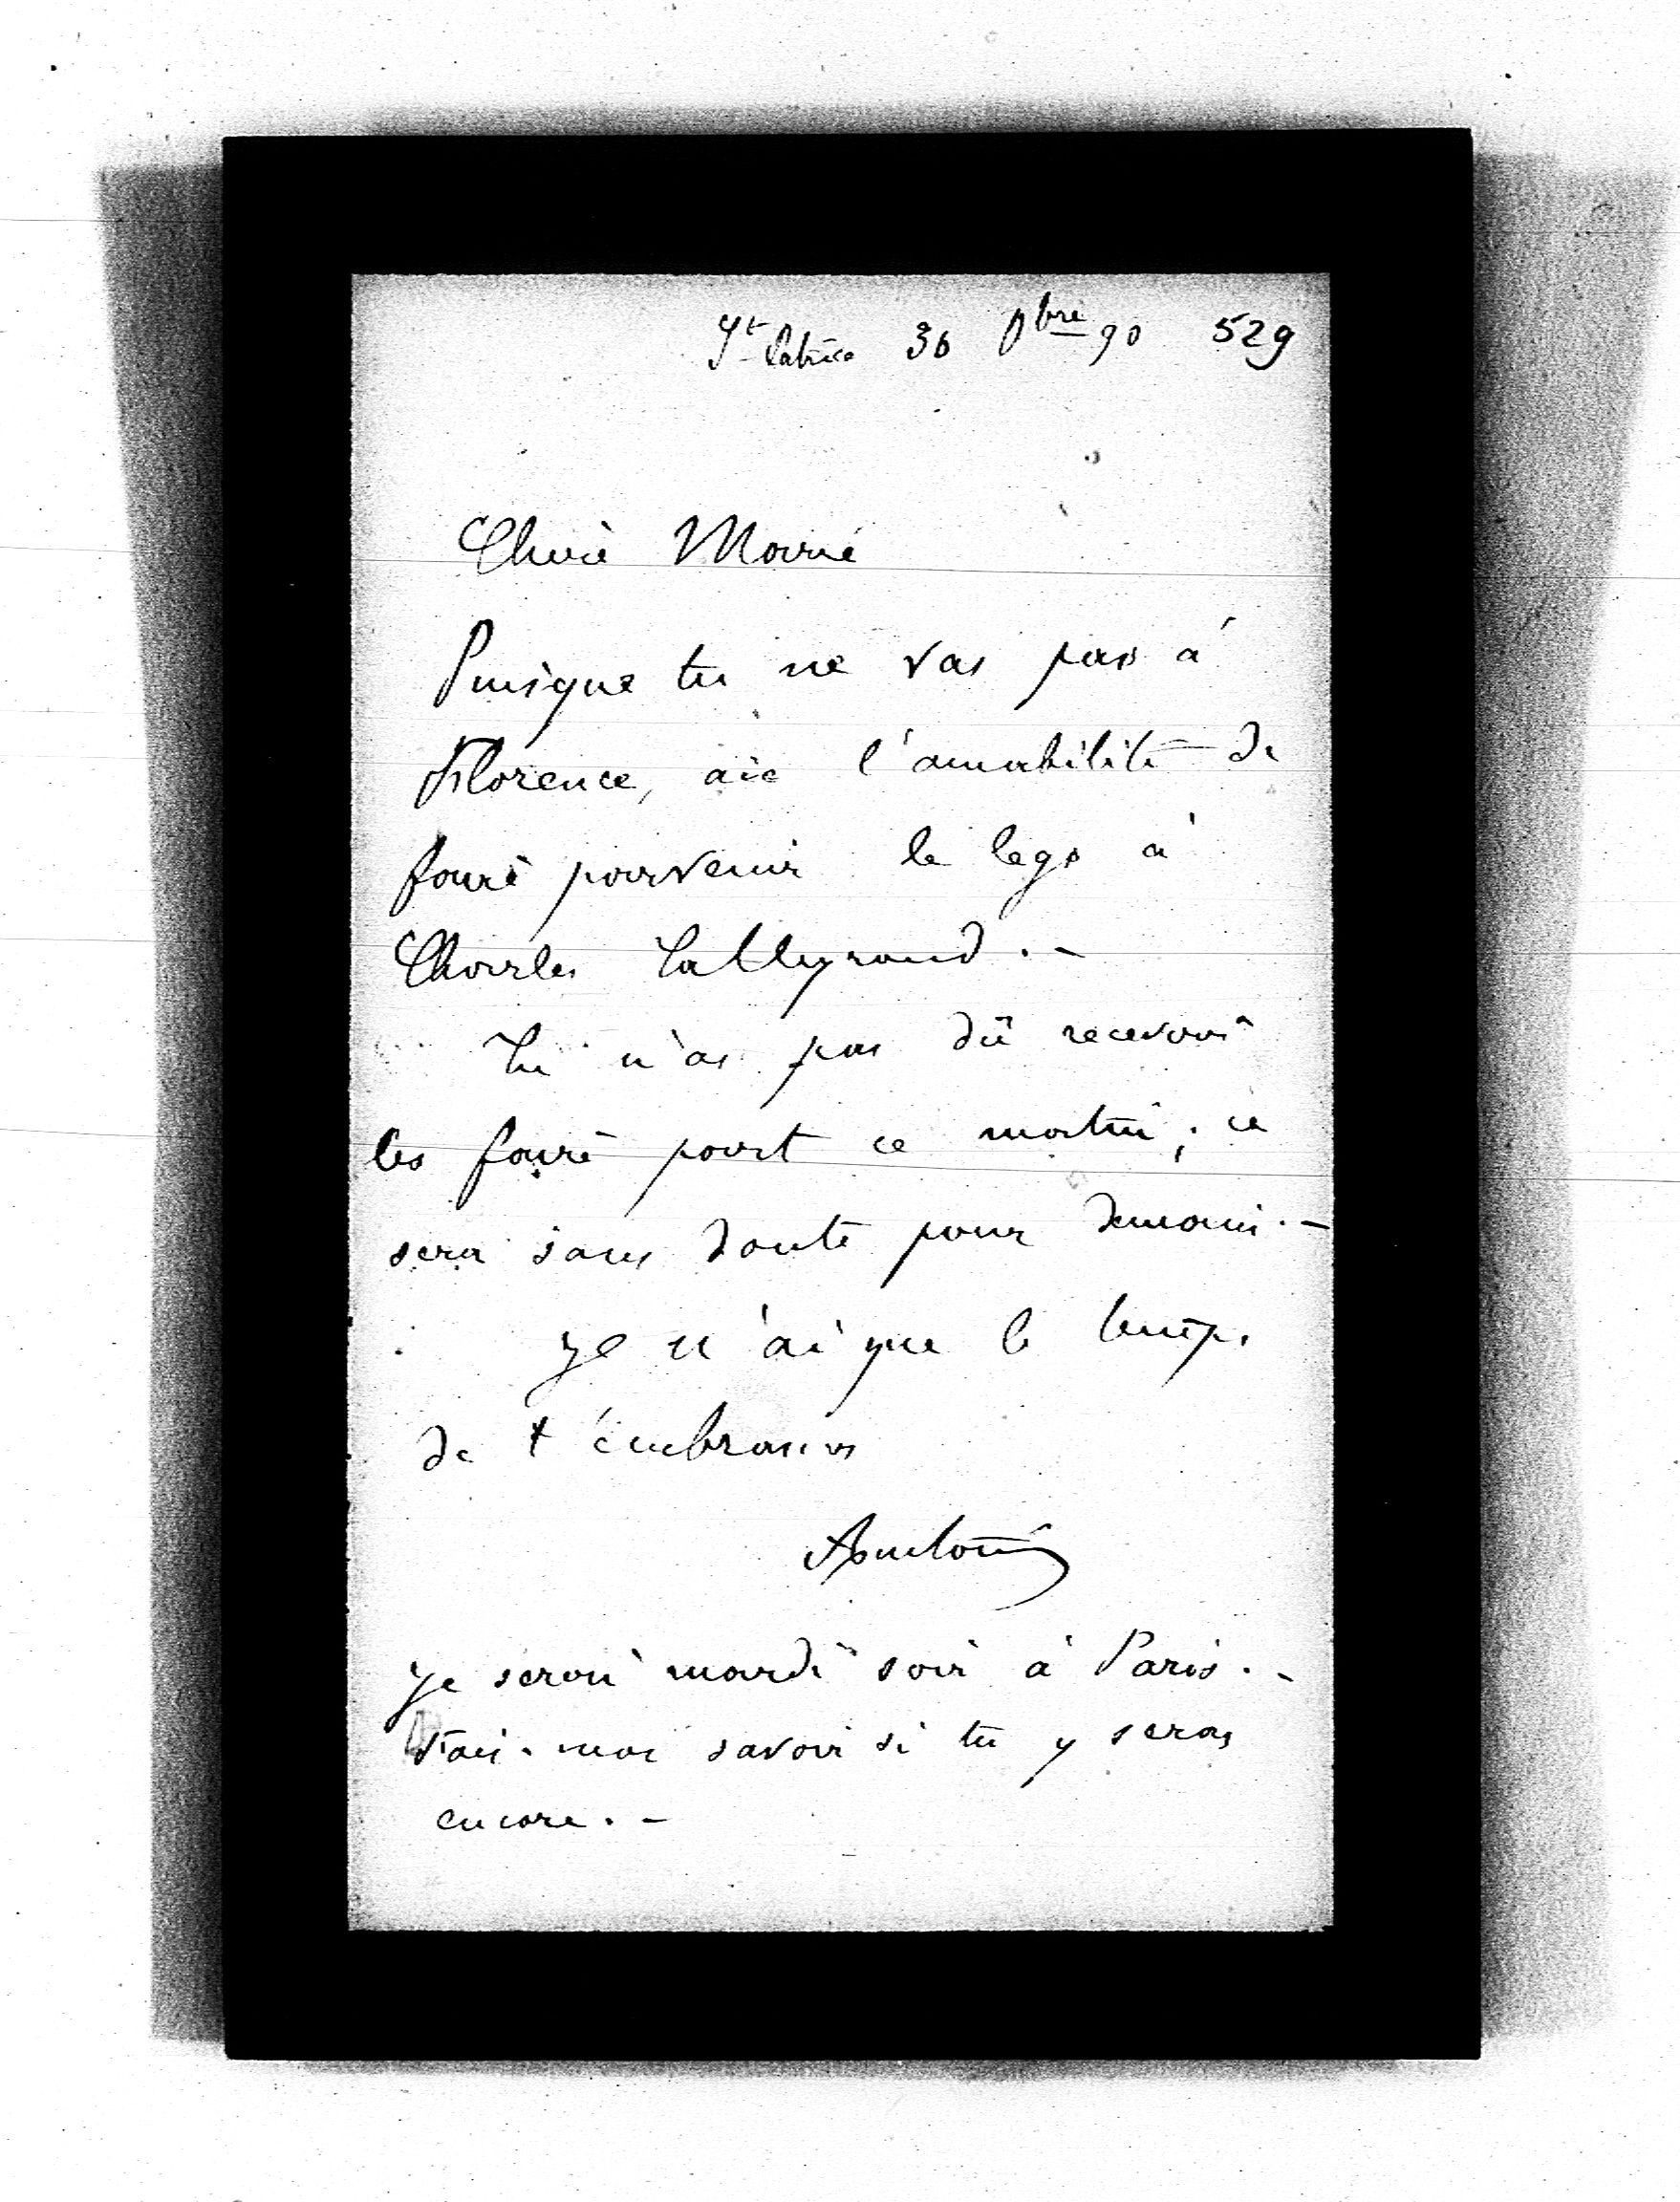 St Patrice 30 8bre 90 529
Chère Marie
Puisque tu ne vas pas à
Florence, aie l'amabilité de
faire parvenir le legs à
Charles Talleyrand. -
Tu n'as pas dû recevoir
les faire part ce matin ; ce
sera sans doute pour demain. -
Je n'ai que le temps
de t'embrasser
Antoine
Je serai mardi soir à Paris. -
Fais-moi savoir si tu y seras
encore. -